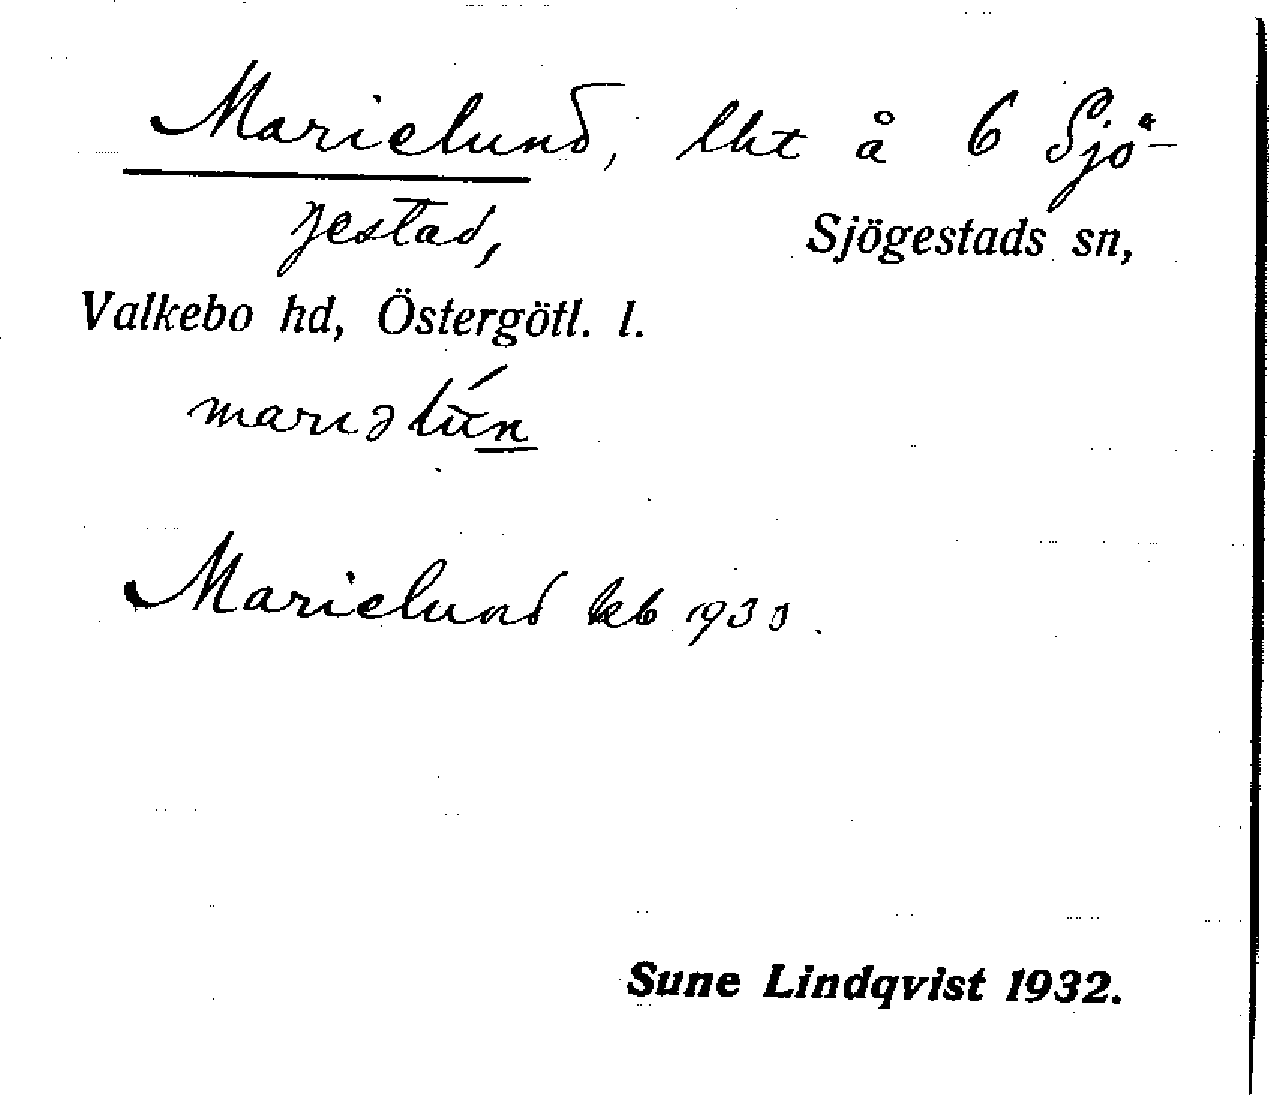 Marielund, lht å 6 Sjö-
gestad, Sjögestads sn,
Valkebo hd, Östergötl. l.
mariəlún
Marielund kb 1930.
Sune Lindqvist 1932.